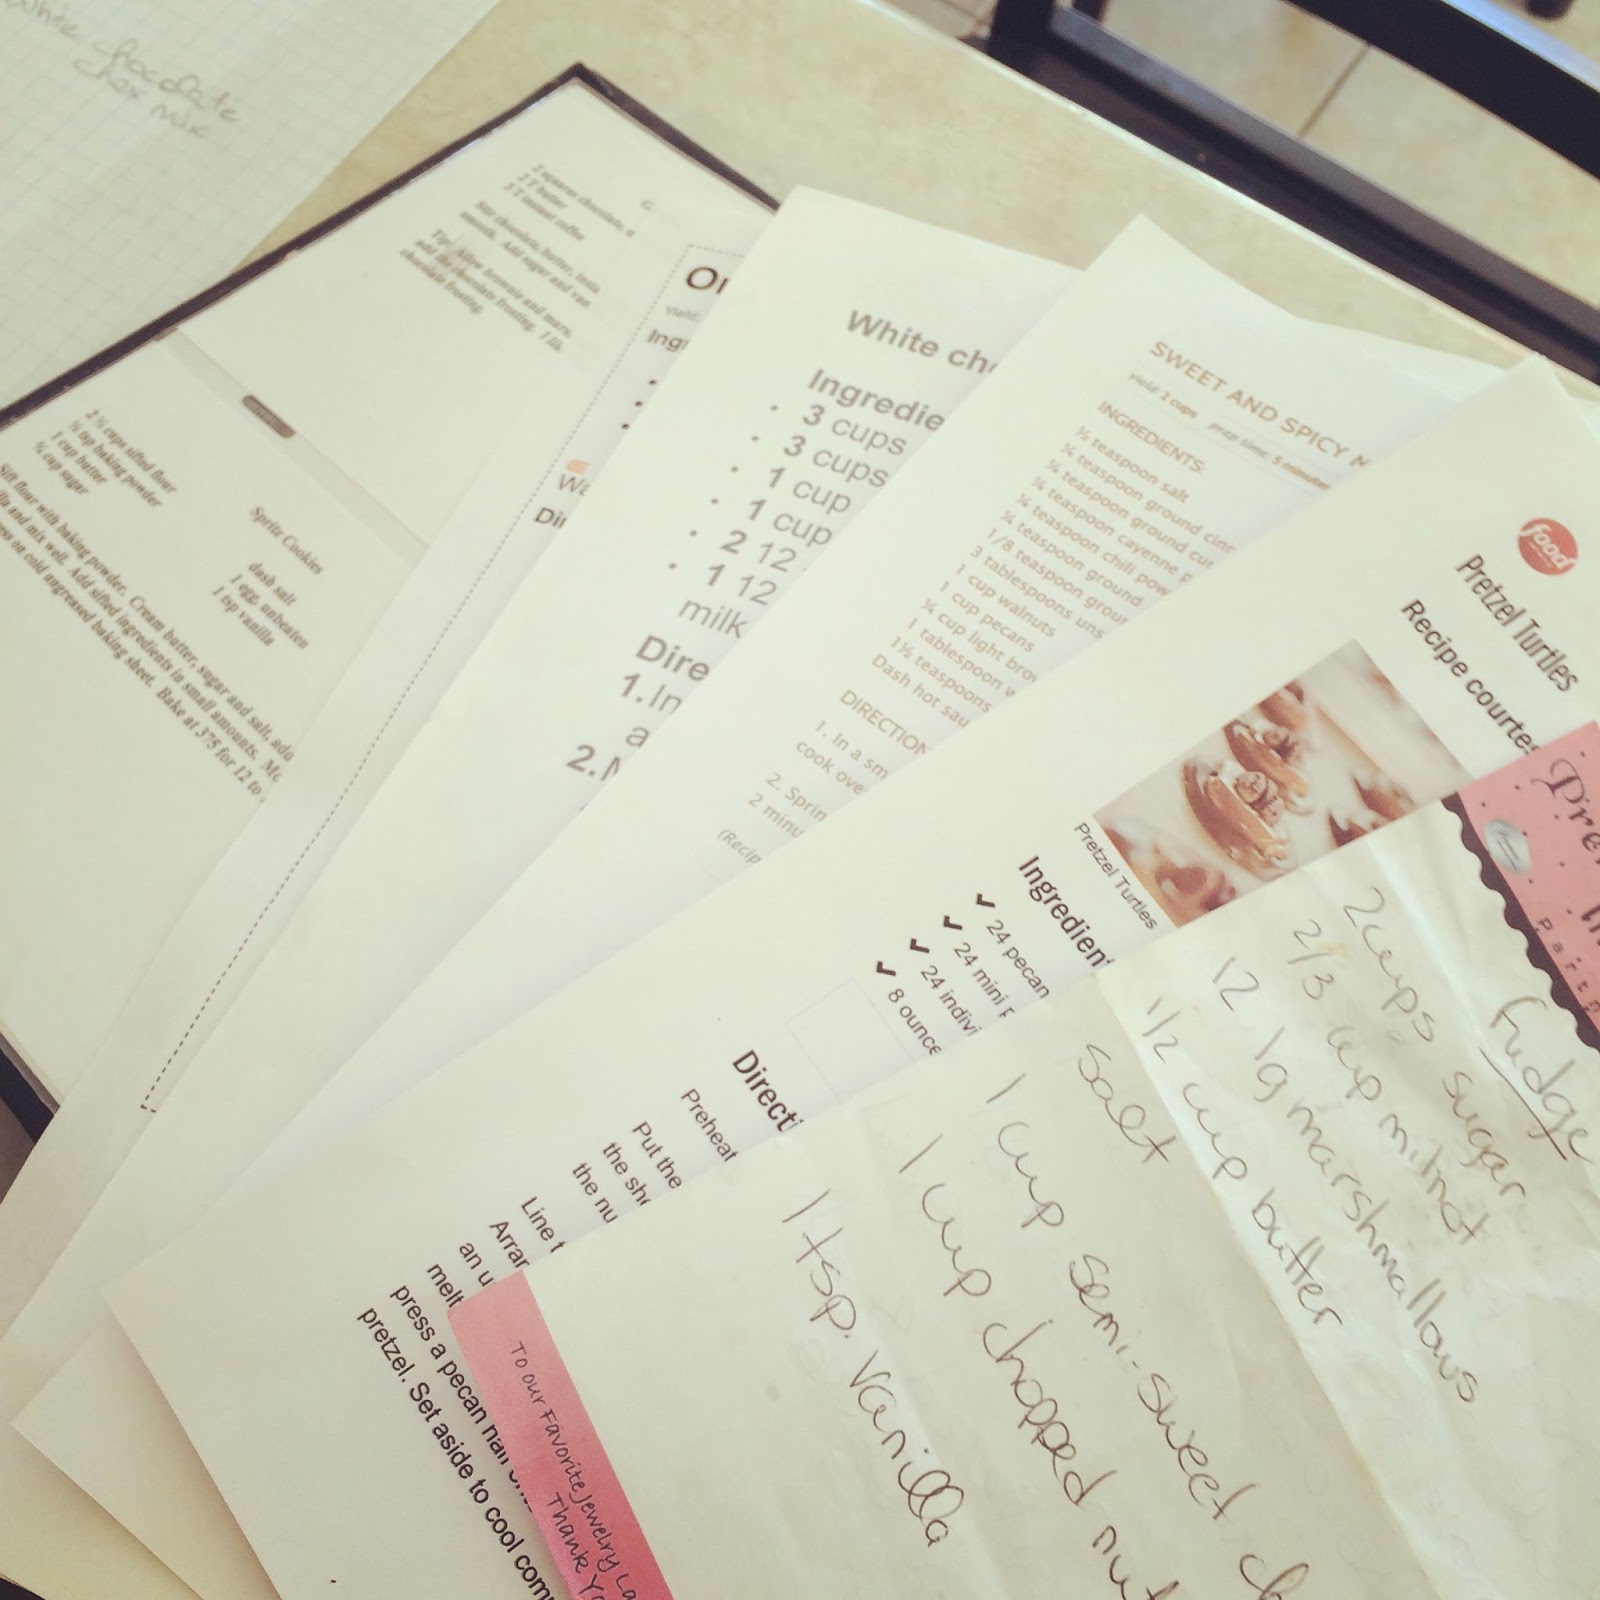 White
chocolate
chex mix
2 squares chocolate,
2 T butter
3 T instant coffee
Mix chocolate, butter, insta
smooth. Add sugar and van
Tip: Allow brownie and mars.
add the chocolate frosting. I lik
chocolate frosting.
Spritz Cookies
2 ½ cups sifted flour
½ tsp baking powder
1 cup butter
¾ cup sugar
dash salt
1 egg, unbeaten
1 tsp vanilla
Sift flour with baking powder. Cream butter, sugar and salt, add
illa and mix well. Add sifted ingredients in small amounts.
ress on cold ungreased baking sheet. Bake at 375 for 12 to
Yield:
Ing
Wa
Dir
White ch
Ingredie
• 3 cups
• 3 cups
• 1 cup
• 1 cup
• 2 12
• 1 12
milk
Dire
1. In
a
2.
SWEET AND SPICY
Yield: 2 cups prep time: 5 minutes
INGREDIENTS:
½ teaspoon salt
teaspoon ground cinn
teaspoon ground cu
teaspoon chili pow
teaspoon cayenne p
teaspoon ground
1/8 teaspoon grour
3 tablespoons uns
1 cup walnuts
1 cup pecans
¼ cup light brow
1 tablespoon w
1½ teaspoons
Dash hot sau
DIRECTION
1. In a sm
cook ove
2. Sprin
2 minu
(Recip
food
Pretzel Turtles
Recipe courtes
Pretzel Turtles
Ingredient
✔ 24 pecan
✔ 24 mini p
✔ 24 indivi
✔ 8 ounce
Directi
Preheat
Put the
the she
the nu
Line t
Arrar
an u
melt
press a pecan half
pretzel. Set aside to cool com
To our Favorite Jewelry La
Thank Yo
Fudge
2 cups sugar
2/3 cup milnot
12 lg marshmallows
1/2 cup butter
salt
1 cup semi-sweet ch
1 cup chopped nut
1 tsp. vanilla